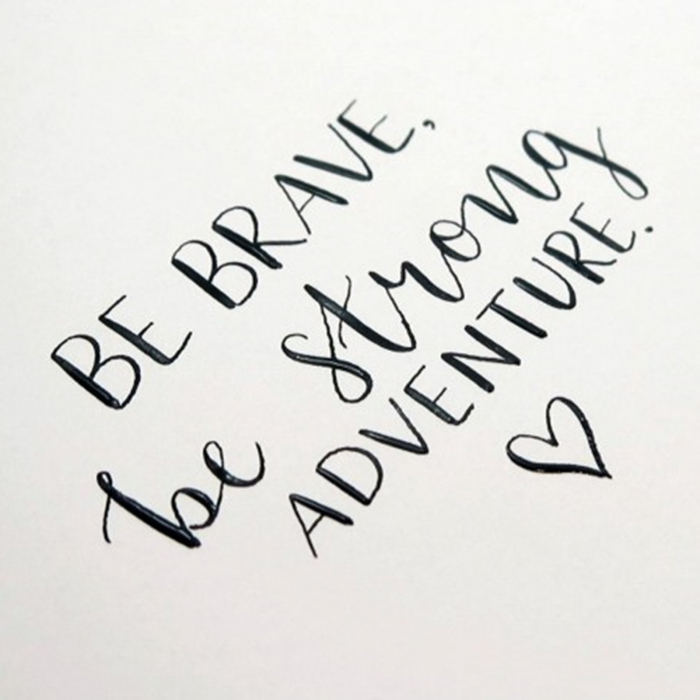 BE BRAVE,
be strong
ADVENTURE.